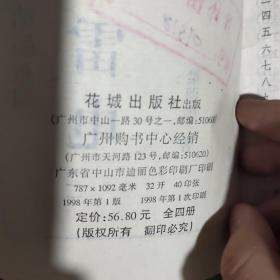 花城出版社出版
(广州市中山一路30号之一,邮编:5106
广州购书中心经销
(广州市天河路123号,邮编:510620)
广东省中山市迪丽色彩印刷厂印刷
787×1092毫米 32开 40印张
1998年第1版 1998年第1次印刷
定价:56.80元 全四册
(版权所有 翻印必究)
一四五六七八九